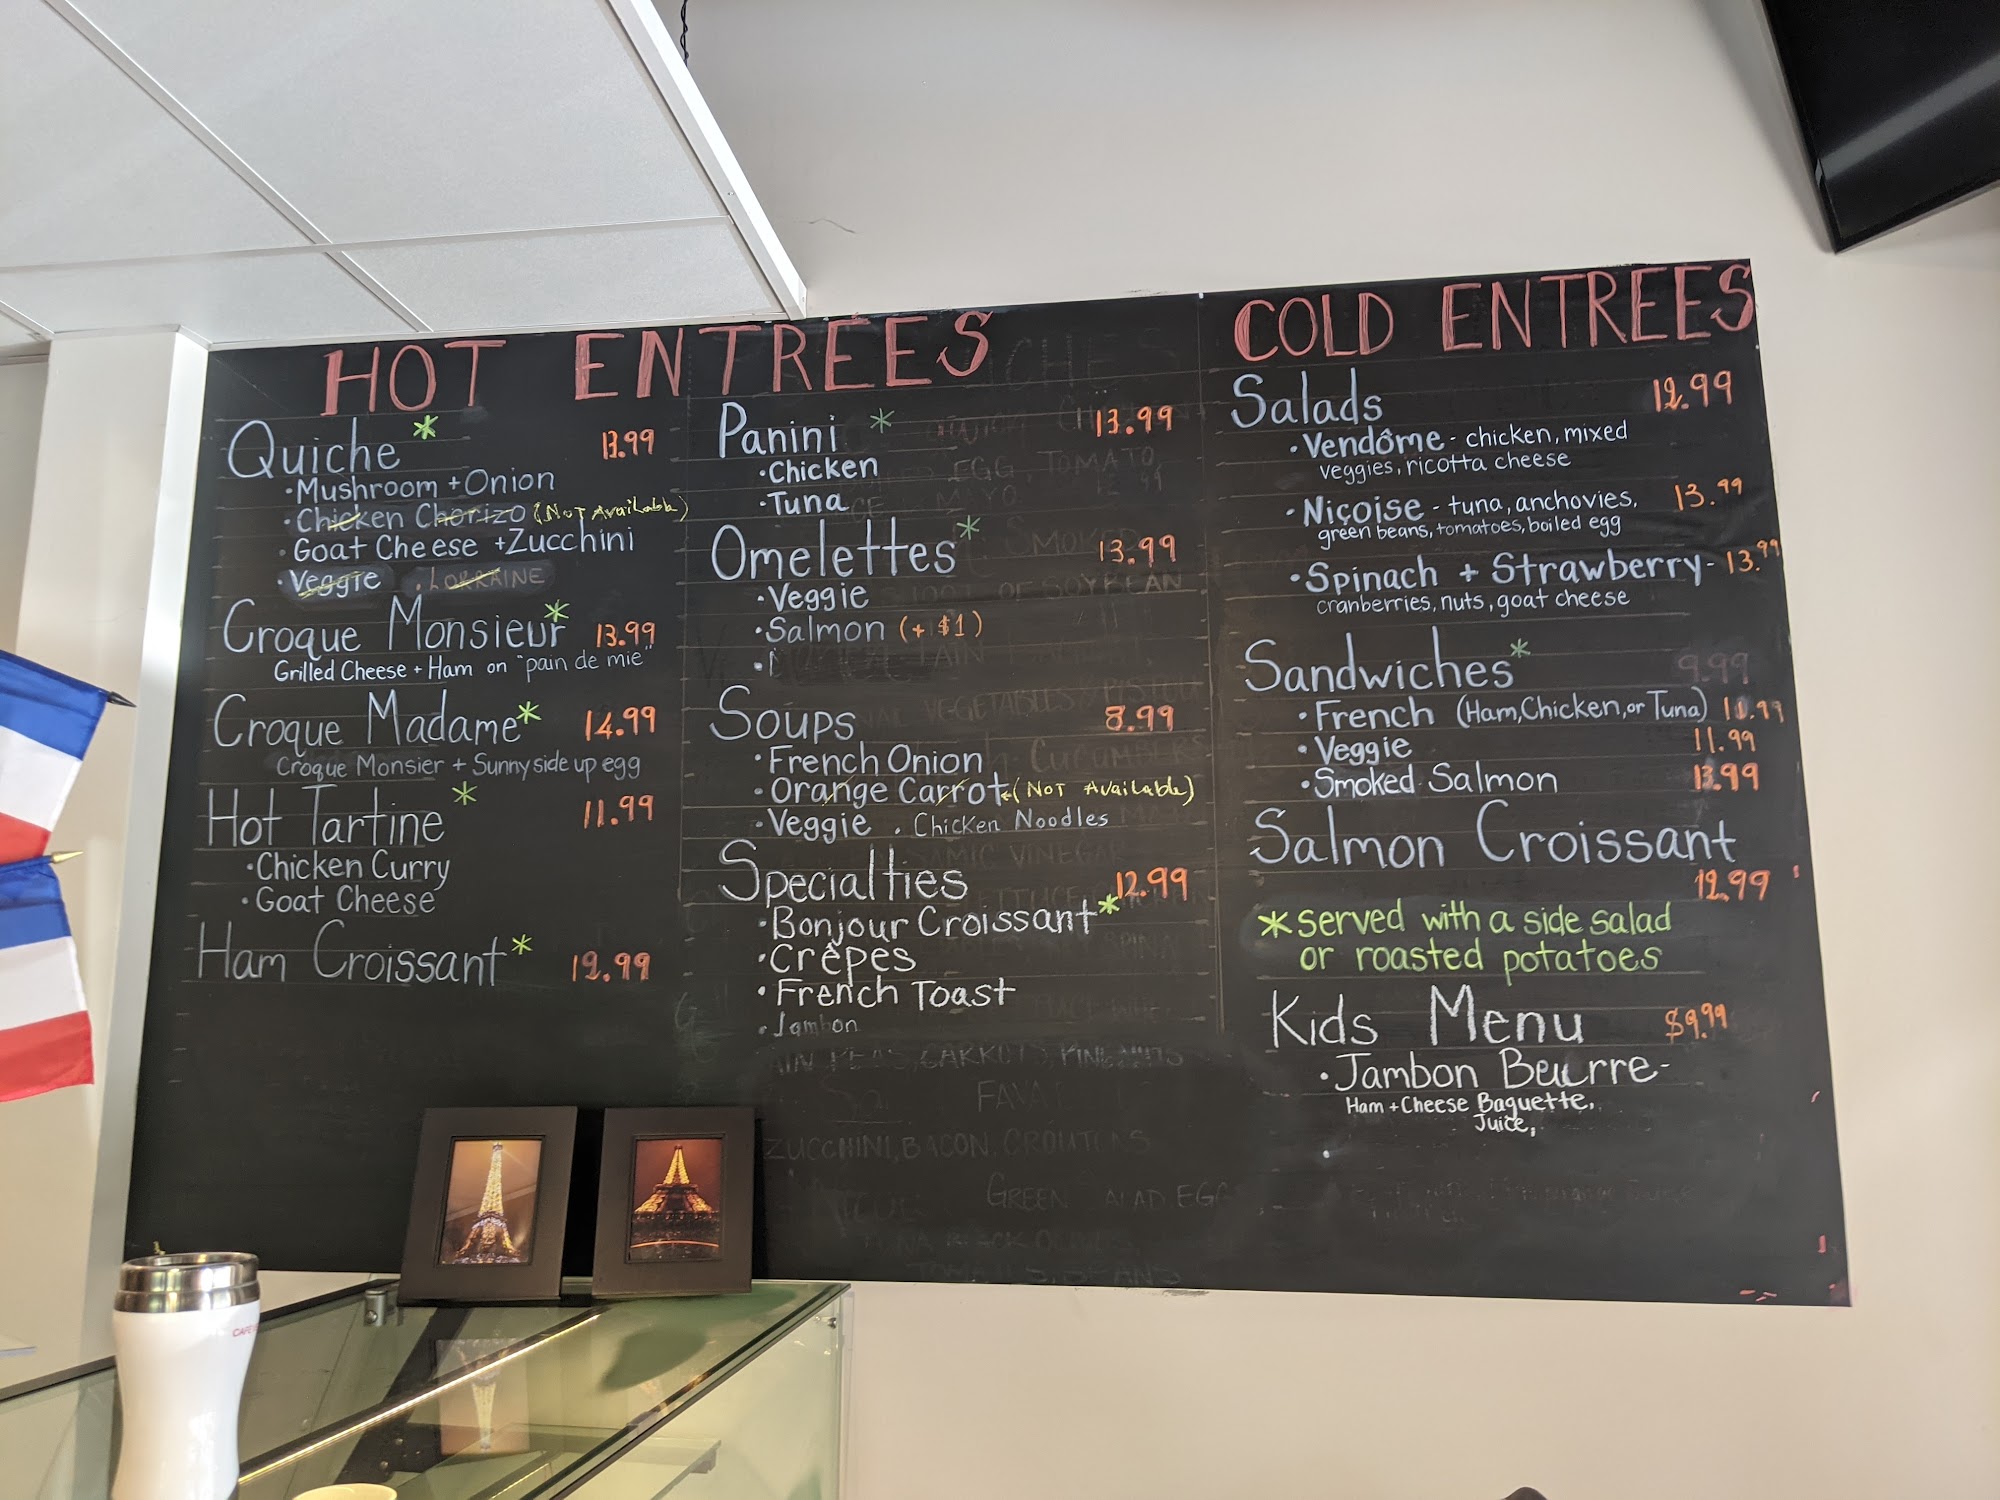 HOT ENTRÉES
Quiche * 13.99
· Mushroom + Onion
· Chicken Chorizo (Not Available)
· Goat Cheese + Zucchini
· Veggie . LORRAINE
Croque Monsieur * 13.99
Grilled Cheese + Ham on "pain de mie"
Croque Madame * 14.99
Croque Monsier + Sunny side up egg
Hot Tartine * 11.99
· Chicken Curry
· Goat Cheese
Ham Croissant * 12.99
Panini * 13.99
· Chicken
· Tuna
Omelettes * 13.99
· Veggie
· Salmon (+ $1)
Soups 8.99
· French Onion
· Orange Carrot (Not Available)
· Veggie . Chicken Noodles
Specialties 12.99
· Bonjour Croissant *
· Crêpes
· French Toast
· Jambon
COLD ENTREES
Salads 12.99
· Vendôme - chicken, mixed
veggies, ricotta cheese
· Niçoise - tuna, anchovies, 13.99
green beans, tomatoes, boiled egg
· Spinach + Strawberry - 13.99
cranberries, nuts, goat cheese
Sandwiches * 9.99
· French (Ham, Chicken, or Tuna)
· Veggie 11.99
· Smoked Salmon 13.99
Salmon Croissant
12.99
* served with a side salad
or roasted potatoes
Kids Menu $9.99
· Jambon Beurre -
Ham + Cheese Baguette,
Juice,
ZUCCHINI, BACON, CROUTONS
CAFÉ